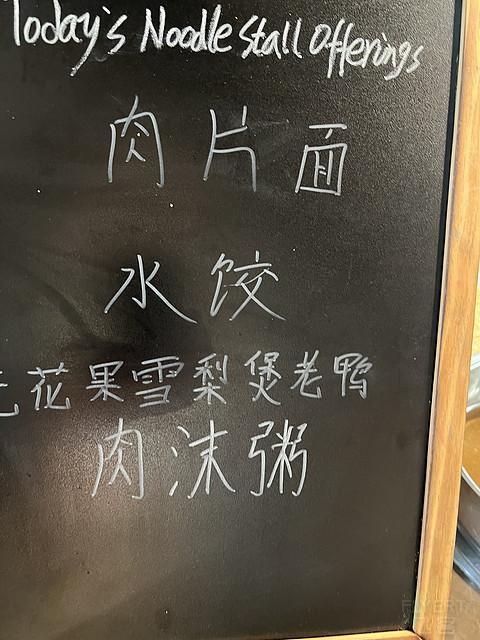 Today's Noodle Stall Offerings
肉片面
水饺
无花果雪梨煲老鸭
肉沫粥
FLYERT